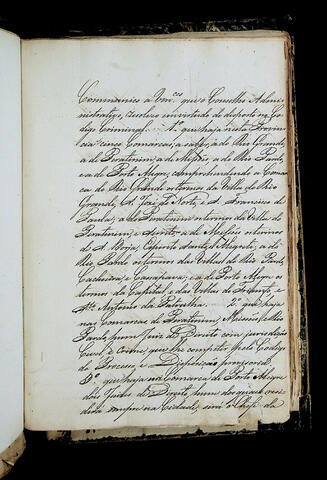 Communico a Vm.ces que o Conselho Admi-
nistrativo, resolveo em virtude do disposto no Co-
digo Criminal. 1.º que haja nesta Provin-
cia cinco Comarcas, a saber, a do Rio Grande,
a de Piratinim, a de Missões, a do Rio Pardo,
e a de Porto Alegre, comprehendendo a Comar-
ca do Rio Grande os termos da Villa do Rio
Grande, S. José do Norte, e S. Francisco de
Paula; a de Piratinim os termos da Villa de
Piratinim, e ; a de Missões os termos
de S. Borja, Espirito Santo, e Alegrete; a do
Rio Pardo os termos das Villas do Rio Pardo,
Cachoeira, e Cassapava, e a de Porto Alegre os
termos da Capital, e das Villas de Triunfo, e
Sto. Antonio da Patrulha. 2.º que haja
nas Comarcas de Piratinim, Missões, e Rio
Pardo, hum Juiz de Direito com jurisdicção
Civil, e Crime, que lhe competir pelo Codigo
do Processo, e Disposição provisoria.
3.º que haja na Comarca de Porto Alegre
dois Juizes de Direito, hum dos quaes resi-
dirá sempre na Cidade, será o Chefe da